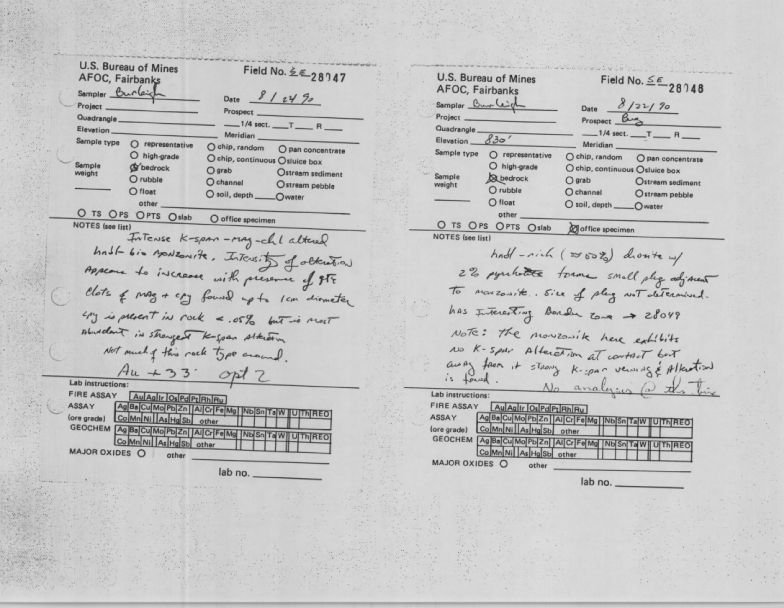 U.S. Bureau of Mines
AFOC, Fairbanks
Field No. SE-28047
Sampler Burleigh
Date 8/24/90
Project
Prospect
Quadrangle
1/4 sect. T R
Elevation
Meridian
Sample type
representative
chip, random
pan concentrate
high-grade
chip, continuous
sluice box
Sample weight
bedrock
grab
stream sediment
rubble
channel
stream pebble
float
soil, depth
water
other
TS PS PTS slab office specimen
NOTES (see list)
Intense K-spar-mag-chl altered
hnbl-bio monzonite. Intensity of alteration
Appears to increase with presence of qtz
Clots of mag + cpy found up to 1cm diameter
cpy is present in rock < .05% but is most
Abundant in strongest K-spar alteration
Not much of this rock type around.
Au + 33 opt 2
Lab instructions:
FIRE ASSAY Au Ag Ir Os Pd Pt Rh Ru
ASSAY Ag Ba Cu Mo Pb Zn Al Cr Fe Mg Nb Sn Ta W U Th REO
(ore grade) Co Mn Ni As Hg Sb other
GEOCHEM Ag Ba Cu Mo Pb Zn Al Cr Fe Mg Nb Sn Ta W U Th REO
Co Mn Ni As Hg Sb other
MAJOR OXIDES other
lab no.
U.S. Bureau of Mines
AFOC, Fairbanks
Field No. SE-28048
Sampler Burleigh
Date 8/22/90
Project
Prospect Bug
Quadrangle
1/4 sect. T R
Elevation 830'
Meridian
Sample type
representative
chip, random
pan concentrate
high-grade
chip, continuous
sluice box
Sample weight
bedrock
grab
stream sediment
rubble
channel
stream pebble
float
soil, depth
water
other
TS PS PTS slab office specimen
NOTES (see list)
hnbl-rich (≈50%) diorite w/
2% pyrrhotite forms small plug adjacent
to monzonite. Size of plug not determined.
has Interesting border zone → 28049
Note: the monzonite here exhibits
No K-spar Alteration at contact but
away from it strong K-spar veining & Alteration
is found.
No analysis @ this time
Lab instructions:
FIRE ASSAY Au Ag Ir Os Pd Pt Rh Ru
ASSAY Ag Ba Cu Mo Pb Zn Al Cr Fe Mg Nb Sn Ta W U Th REO
(ore grade) Co Mn Ni As Hg Sb other
GEOCHEM Ag Ba Cu Mo Pb Zn Al Cr Fe Mg Nb Sn Ta W U Th REO
Co Mn Ni As Hg Sb other
MAJOR OXIDES other
lab no.